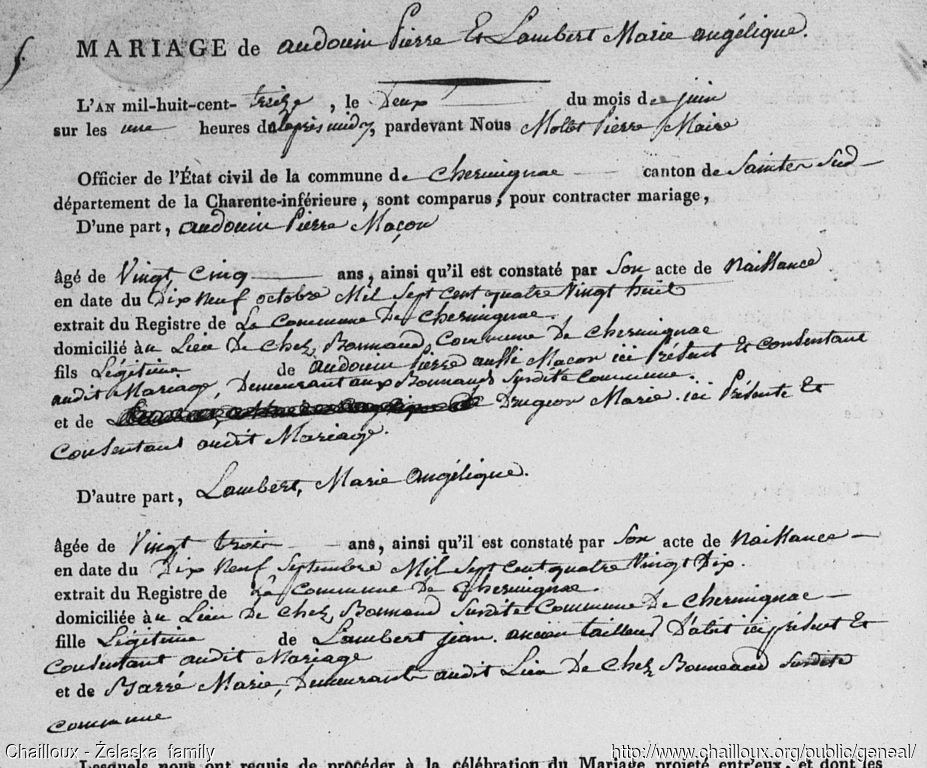 MARIAGE de audouin Pierre Et Lambert Marie angélique.
L'AN mil-huit-cent- treize, le Deux du mois de juin
sur les une heures de l'après midy, pardevant Nous Pierre Maire
Officier de l'État civil de la commune de Chermignac canton de Saintes Sud
département de la Charente-inférieure, sont comparus, pour contracter mariage,
D'une part, audouin Pierre Maçon
âgé de Vingt Cinq ans, ainsi qu'il est constaté par Son acte de Naissance
en date du Dix Neuf octobre Mil Sept Cent quatre Vingt huit
extrait du Registre de La Commune De Chermignac.
domicilié au Lieu De Chez Bonnaud, Commune De Chermignac
fils Légitime de audouin Pierre aussi Maçon ici Présent Et Consentant
audit Mariage, Demeurant aux Bonnauds Susdite Commune.
et de Drugeon Marie. ici Présente Et
Consentant audit Mariage.
D'autre part, Lambert, Marie Angélique.
âgée de Vingt trois ans, ainsi qu'il est constaté par Son acte de Naissance
en date du Dix Neuf Septembre Mil Sept Cent quatre Vingt Dix.
extrait du Registre de La Commune De Chermignac.
domiciliée au Lieu De Chez Bonnaud Susdite Commune De Chermignac
fille Légitime de Lambert jean. ancien tailleur D'abit ici présent Et
Consentant audit Mariage
et de Barré Marie, Demeurant audit Lieu De Chez Bonneaud Susdite
Commune
Lesquels nous ont requis de procéder à la célébration du Mariage projeté entr'eux, et dont les
Chailloux - Želaska family
http://www.chailloux.org/public/geneal/